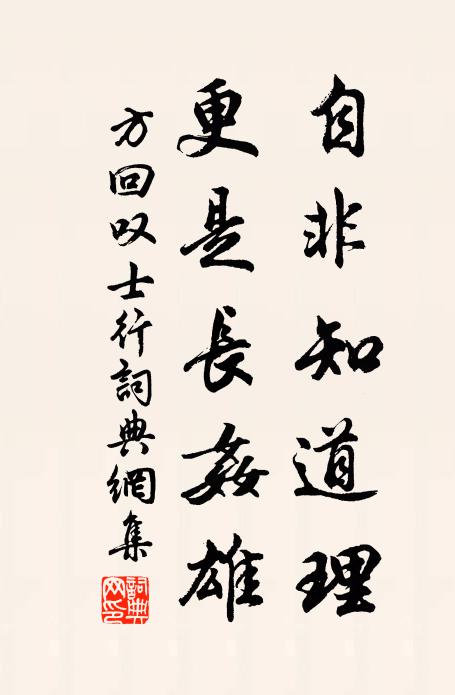 自非知道理
更是長姦雄
方回叹士行詞典網集
詞典網印